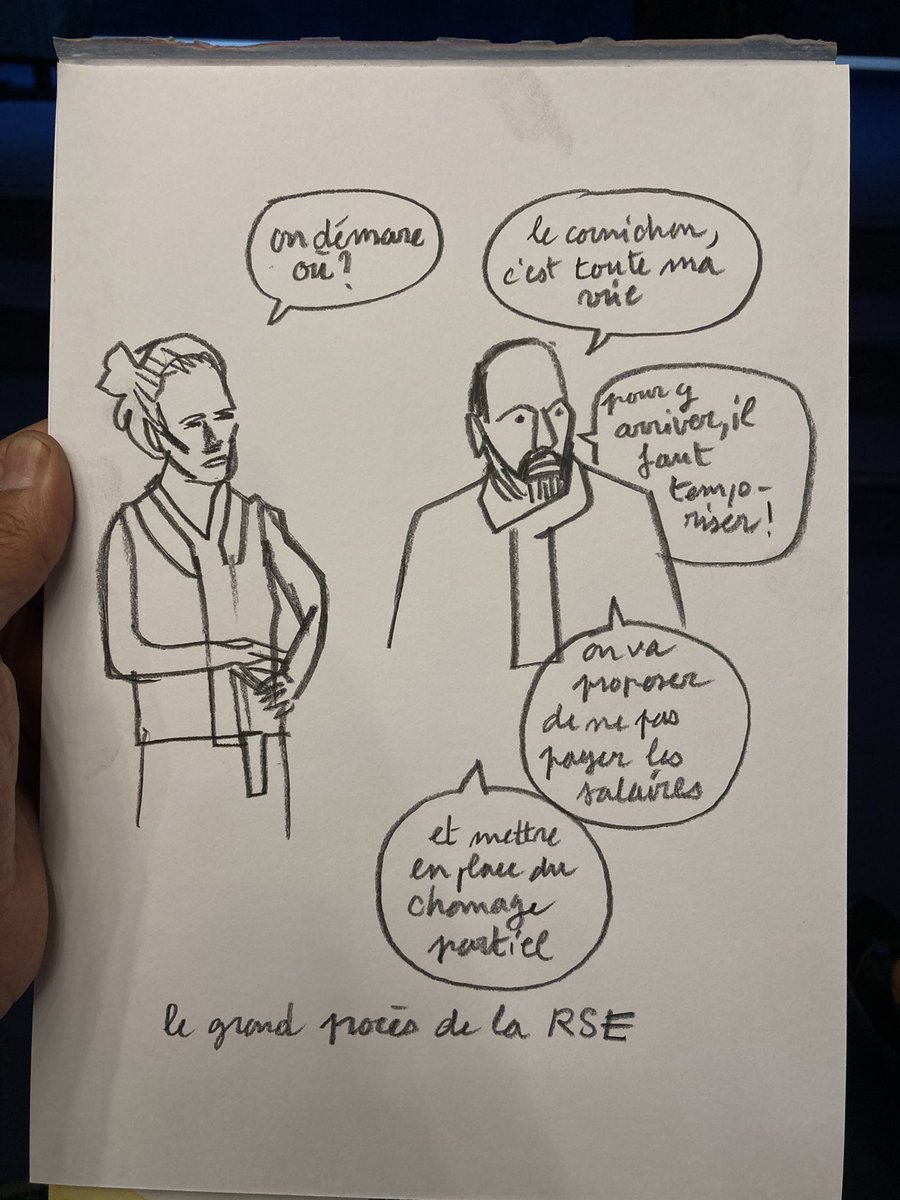 on démare
où?
le cornichon,
c'est toute ma
vie
pour y
arriver, il
faut
tempo-
riser!
on va
proposer
de ne pas
payer les
salaires
et mettre
en place du
chomage
partiel
le grand procès de la RSE